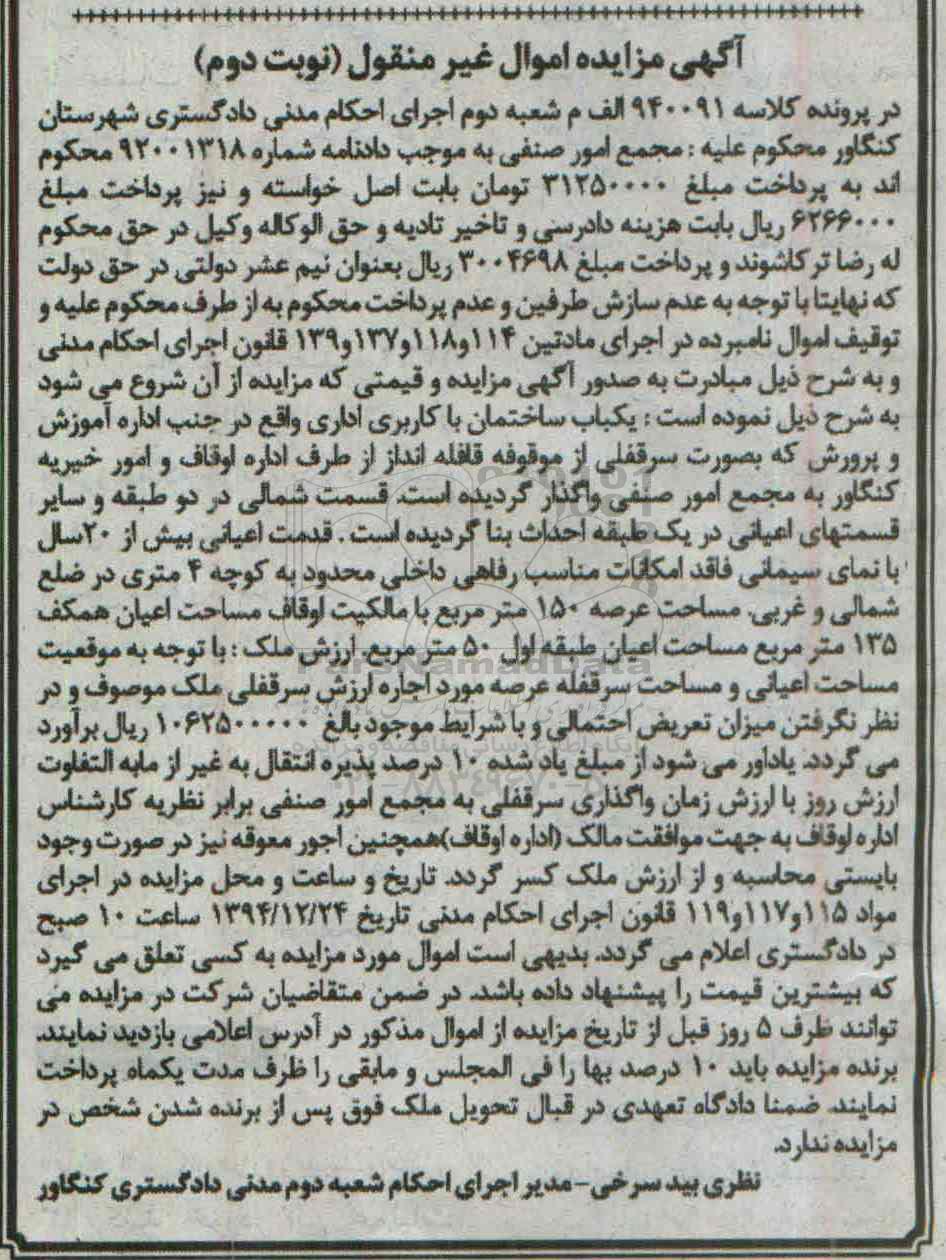 آگهی مزایده اموال غیر منقول (نوبت دوم)
در پرونده کلاسه ۹۴۰۰۹۱ الف م شعبه دوم اجرای احکام مدنی دادگستری شهرستان
کنگاور محکوم علیه : مجمع امور صنفی به موجب دادنامه شماره ۹۲۰۰۱۳۱۸ محکوم
اند به پرداخت مبلغ ۳۱۲۵۰۰۰۰ تومان بابت اصل خواسته و نیز پرداخت مبلغ
۶۲۶۶۰۰۰ ریال بابت هزینه دادرسی و تاخیر تادیه و حق الوکاله وکیل در حق محکوم
له رضا ترکاشوند و پرداخت مبلغ ۳۰۰۴۶۹۸ ریال بعنوان نیم عشر دولتی در حق دولت
که نهایتا با توجه به عدم سازش طرفین و عدم پرداخت محکوم به از طرف محکوم علیه و
توقیف اموال نامبرده در اجرای مادتین ۱۱۴و۱۱۸و۱۳۷و۱۳۹ قانون اجرای احکام مدنی
و به شرح ذیل مبادرت به صدور آگهی مزایده و قیمتی که مزایده از آن شروع می شود
به شرح ذیل نموده است : یکباب ساختمان با کاربری اداری واقع در جنب اداره آموزش
و پرورش که بصورت سرقفلی از موقوفه قافله انداز از طرف اداره اوقاف و امور خیریه
کنگاور به مجمع امور صنفی واگذار گردیده است. قسمت شمالی در دو طبقه و سایر
قسمتهای اعیانی در یک طبقه احداث بنا گردیده است . قدمت اعیانی بیش از ۲۰سال
با نمای سیمانی فاقد امکانات مناسب رفاهی داخلی محدود به کوچه ۴ متری در ضلع
شمالی و غربی. مساحت عرصه ۱۵۰ متر مربع با مالکیت اوقاف مساحت اعیان همکف
۱۳۵ متر مربع مساحت اعیان طبقه اول ۵۰ متر مربع. ارزش ملک : با توجه به موقعیت
مساحت اعیانی و مساحت سرقفله عرصه مورد اجاره ارزش سرقفلی ملک موصوف و در
نظر نگرفتن میزان تعریض احتمالی و با شرایط موجود بالغ ۱۰۶۲۵۰۰۰۰۰ ریال برآورد
می گردد. یاداور می شود از مبلغ یاد شده ۱۰ درصد پذیره انتقال به غیر از مابه التفاوت
ارزش روز با ارزش زمان واگذاری سرقفلی به مجمع امور صنفی برابر نظریه کارشناس
اداره اوقاف به جهت موافقت مالک (اداره اوقاف)همچنین اجور معوقه نیز در صورت وجود
بایستی محاسبه و از ارزش ملک کسر گردد. تاریخ و ساعت و محل مزایده در اجرای
مواد ۱۱۵و۱۱۷و۱۱۹ قانون اجرای احکام مدنی تاریخ ۱۳۹۴/۱۲/۲۴ ساعت ۱۰ صبح
در دادگستری اعلام می گردد. بدیهی است اموال مورد مزایده به کسی تعلق می گیرد
که بیشترین قیمت را پیشنهاد داده باشد. در ضمن متقاضیان شرکت در مزایده می
توانند ظرف ۵ روز قبل از تاریخ مزایده از اموال مذکور در آدرس اعلامی بازدید نمایند.
برنده مزایده باید ۱۰ درصد بها را فی المجلس و مابقی را ظرف مدت یکماه پرداخت
نمایند. ضمنا دادگاه تعهدی در قبال تحویل ملک فوق پس از برنده شدن شخص در
مزایده ندارد.
نظری بید سرخی-مدیر اجرای احکام شعبه دوم مدنی دادگستری کنگاور
ParsNamadData
پایگاه اطلاع رسانی مناقصه و مزایده